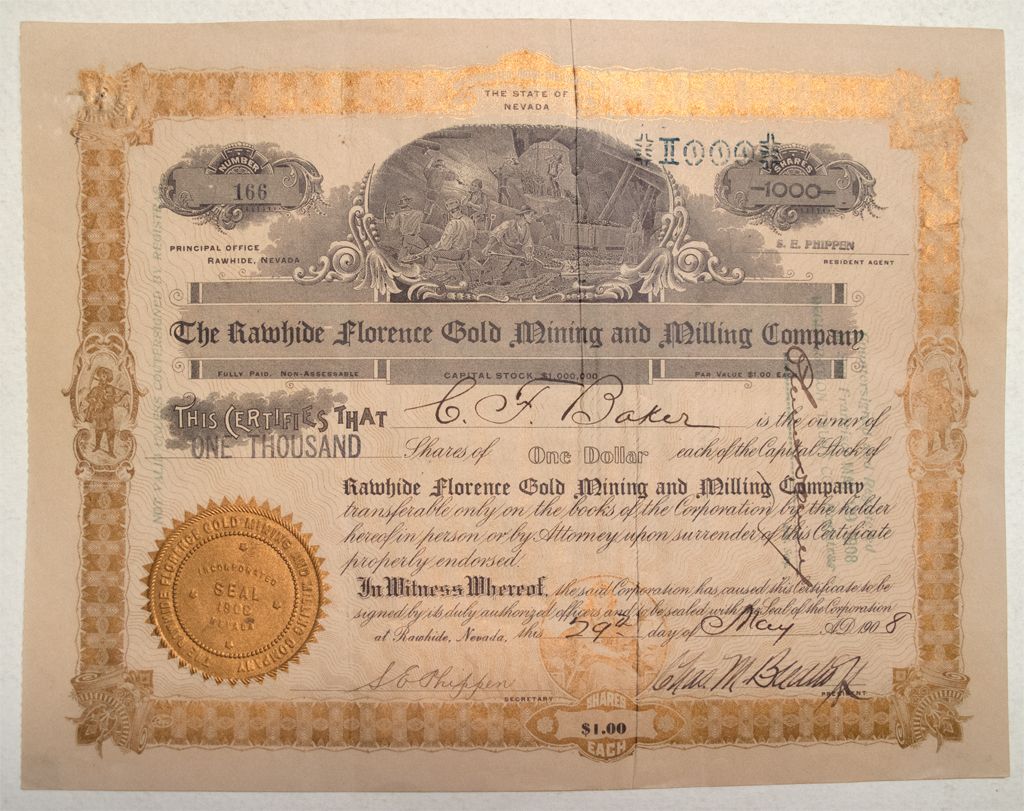 THE STATE OF
NEVADA
NUMBER
166
1000
SHARES
1000
PRINCIPAL OFFICE
RAWHIDE, NEVADA
S. E. PHIPPEN
RESIDENT AGENT
The Rawhide Florence Gold Mining and Milling Company
FULLY PAID. NON-ASSESSABLE
CAPITAL STOCK $1,000,000
PAR VALUE $1.00 EACH
THIS CERTIFIES THAT C. F. Baker is the owner of
ONE THOUSAND Shares of One Dollar each of the Capital Stock of
Rawhide Florence Gold Mining and Milling Company
transferable only on the books of the Corporation by the holder
hereof in person or by Attorney upon surrender of this Certificate
properly endorsed.
In Witness Whereof, the said Corporation has caused this Certificate to be
signed by its duly authorized officers and to be sealed with the Seal of the Corporation
at Rawhide, Nevada, this 29th day of May A.D. 1908
S E Phippen
SECRETARY
Chas M
PRESIDENT
SHARES
$1.00
EACH
THE RAWHIDE FLORENCE GOLD MINING AND MILLING COMPANY
INCORPORATED
SEAL
NEVADA
NOT VALID UNLESS COUNTERSIGNED BY REGISTRAR